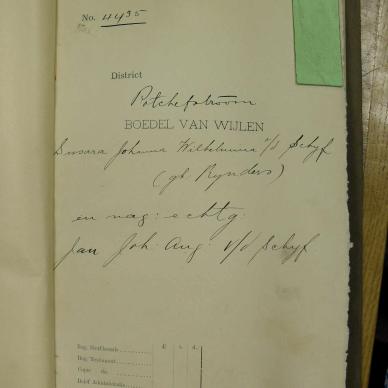 No. 4435
District
Potchefstroom
BOEDEL VAN WIJLEN
Susara Johanna Wilhelmina v/d Schyf
(gb Rynders)
en nag: echtg:
Jan Joh: Aug: v/d Schyf
£ s. d.
Reg. Sterfkennis
Reg. Testament
Copie do.
Brief Administratie